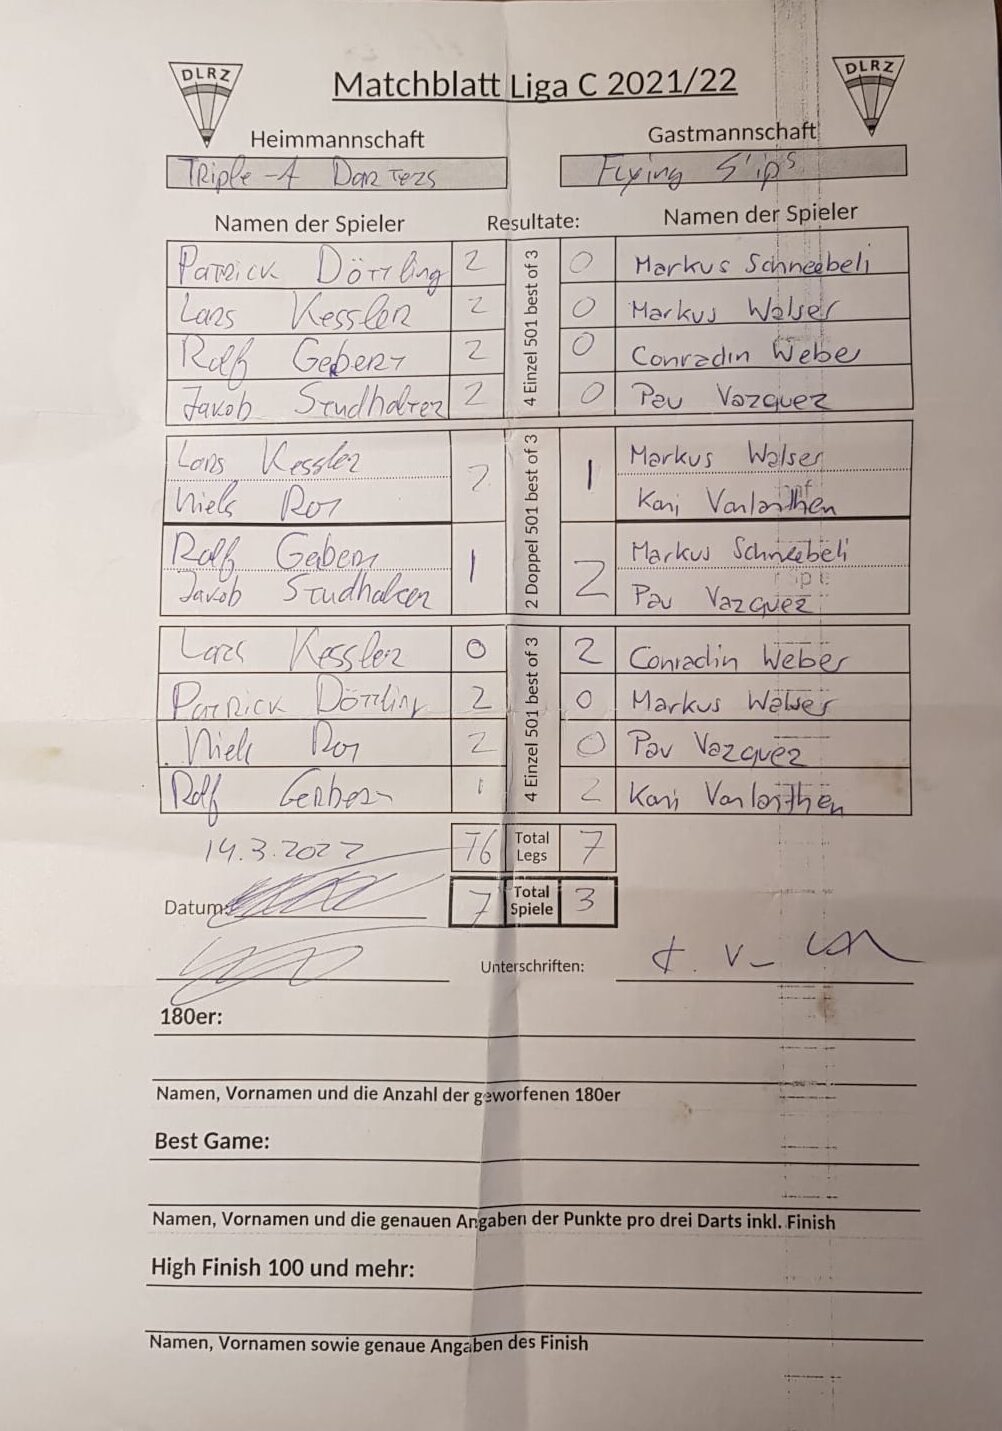 DLRZ Matchblatt Liga C 2021/22 DLRZ
Heimmannschaft Gastmannschaft
Triple-A Darters Flying S'ips
Namen der Spieler Resultate: Namen der Spieler
4 Einzel 501 best of 3
Patrick Dörfling 2 0 Markus Schneebeli
Lars Kessler 2 0 Markus Walser
Rolf Gebert 2 0 Conradin Weber
Jakob Studhalter 2 0 Pau Vazquez
2 Doppel 501 best of 3
Lars Kessler 2 1 Markus Walser
Niels Roy Kari Vonlanthen
Rolf Gebert 1 2 Markus Schneebeli
Jakob Studhalter Pau Vazquez
4 Einzel 501 best of 3
Lars Kessler 0 2 Conradin Weber
Patrick Dörfling 2 0 Markus Walser
Niels Roy 2 0 Pau Vazquez
Rolf Gerber 1 2 Kari Vonlanthen
14.3.2022 16 Total Legs 7
Datum: 7 Total Spiele 3
Unterschriften:
180er:
Namen, Vornamen und die Anzahl der geworfenen 180er
Best Game:
Namen, Vornamen und die genauen Angaben der Punkte pro drei Darts inkl. Finish
High Finish 100 und mehr:
Namen, Vornamen sowie genaue Angaben des Finish